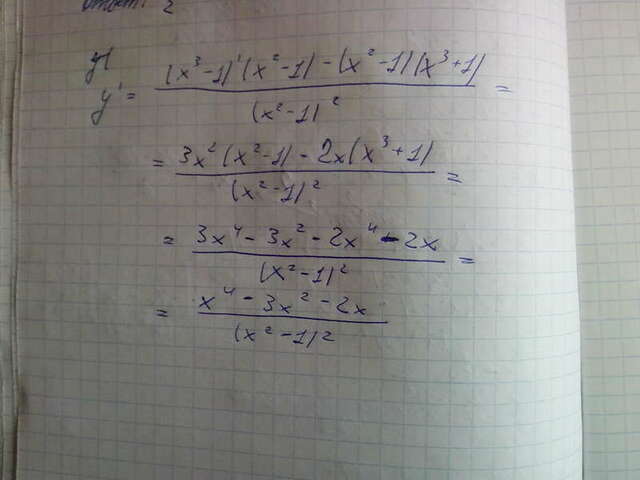 y'
y' = (x³-1)'(x²-1) - (x²-1)(x³+1) / (x²-1)² =
= 3x²(x²-1) - 2x(x³+1) / (x²-1)² =
= 3x⁴ - 3x² - 2x⁴ - 2x / (x²-1)² =
= x⁴ - 3x² - 2x / (x²-1)²